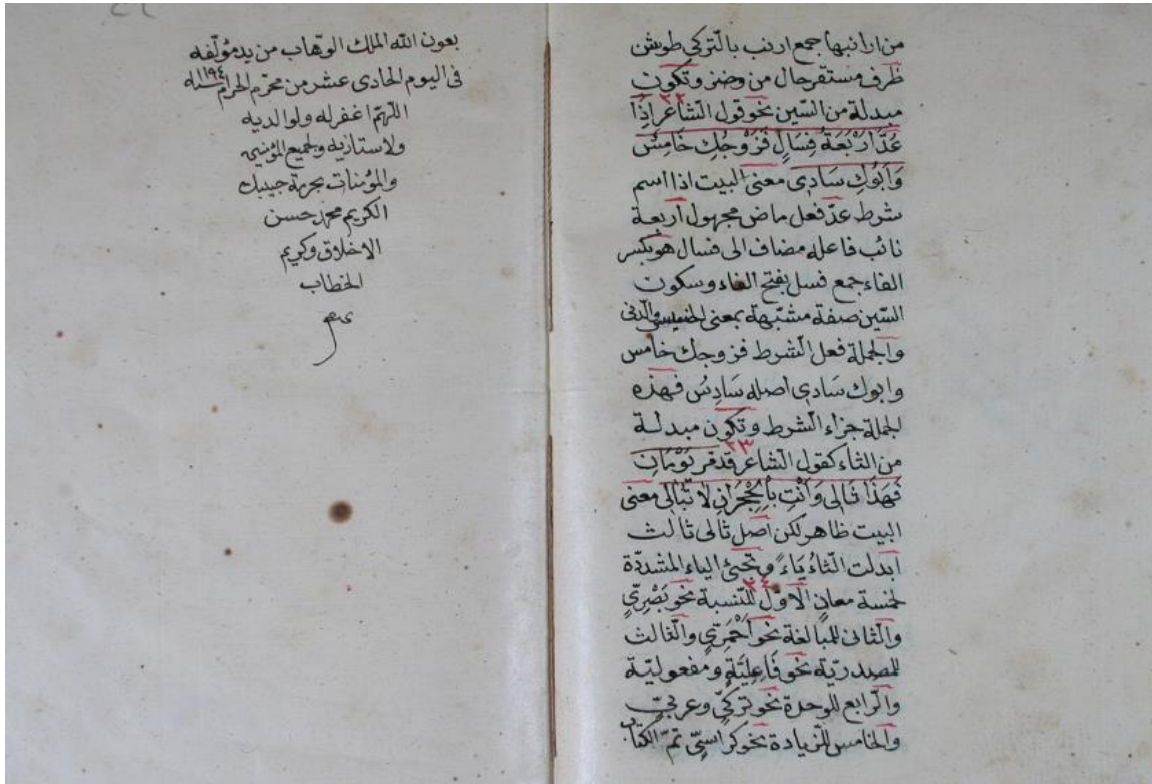 من ارانبها جمع ارنب بالتركى طوشن
ظرف مستقر حال من وخز وتكون
٢٢
مبدلة من السّين نحو قول الشاعر اذا
عُدَّ اَرْبَعَةُ فِسَالٍ فَزَوْجُكِ خَامِسٌ
وَاَبُوكِ سَادِى معنى البيت اذا اسم
شرط عدّ فعل ماض مجهول اربعة
نائب فاعله مضاف الى فسال هو بكسر
الفاء جمع فسل بفتح الفاء وسكون
السّين صفة مشبّهة بمعنى الخسيس والدنى
والجملة فعل الشرط فزوجك خامس
وابوك سادى اصله سَادِسُ فهذه
الجملة جزاء الشرط وتكون مبدلة
٢٣
من الثاء كقول الشاعر قد مر يَوْمَانِ
فَهَذَا ثَالِى وَاَنْتِ بِالْهِجْرَانِ لَا تُبَالِى معنى
البيت ظاهر لكن اصل ثالى ثالث
ابدلت الثاءُ يَاءً ويجئ الياء المشدّدة
٢٤
لخمسة معانٍ الاوّل للنسبة نحو بَصْرِىٍّ
والثانى للمبالغة نحو اَحْمَرِىٍّ والثالث
للمصدريّة نحو فَاعِلِيَّةٍ ومفعوليّة
والرابع للوحدة نحو تركىّ وعربىّ
والخامس للزيادة نحو كراسىّ تمّ الكتاب
بعون الله الملك الوهاب من يد مؤلّفه
فى اليوم الحادى عشر من محرّم الحرام سنه ١١٩٤
اللهمّ اغفر له ولوالديه
ولاستاذيه ولجميع المؤمنين
والمؤمنات بحرمة حبيبك
الكريم محمد حسن
الاخلاق وكريم
الخطاب